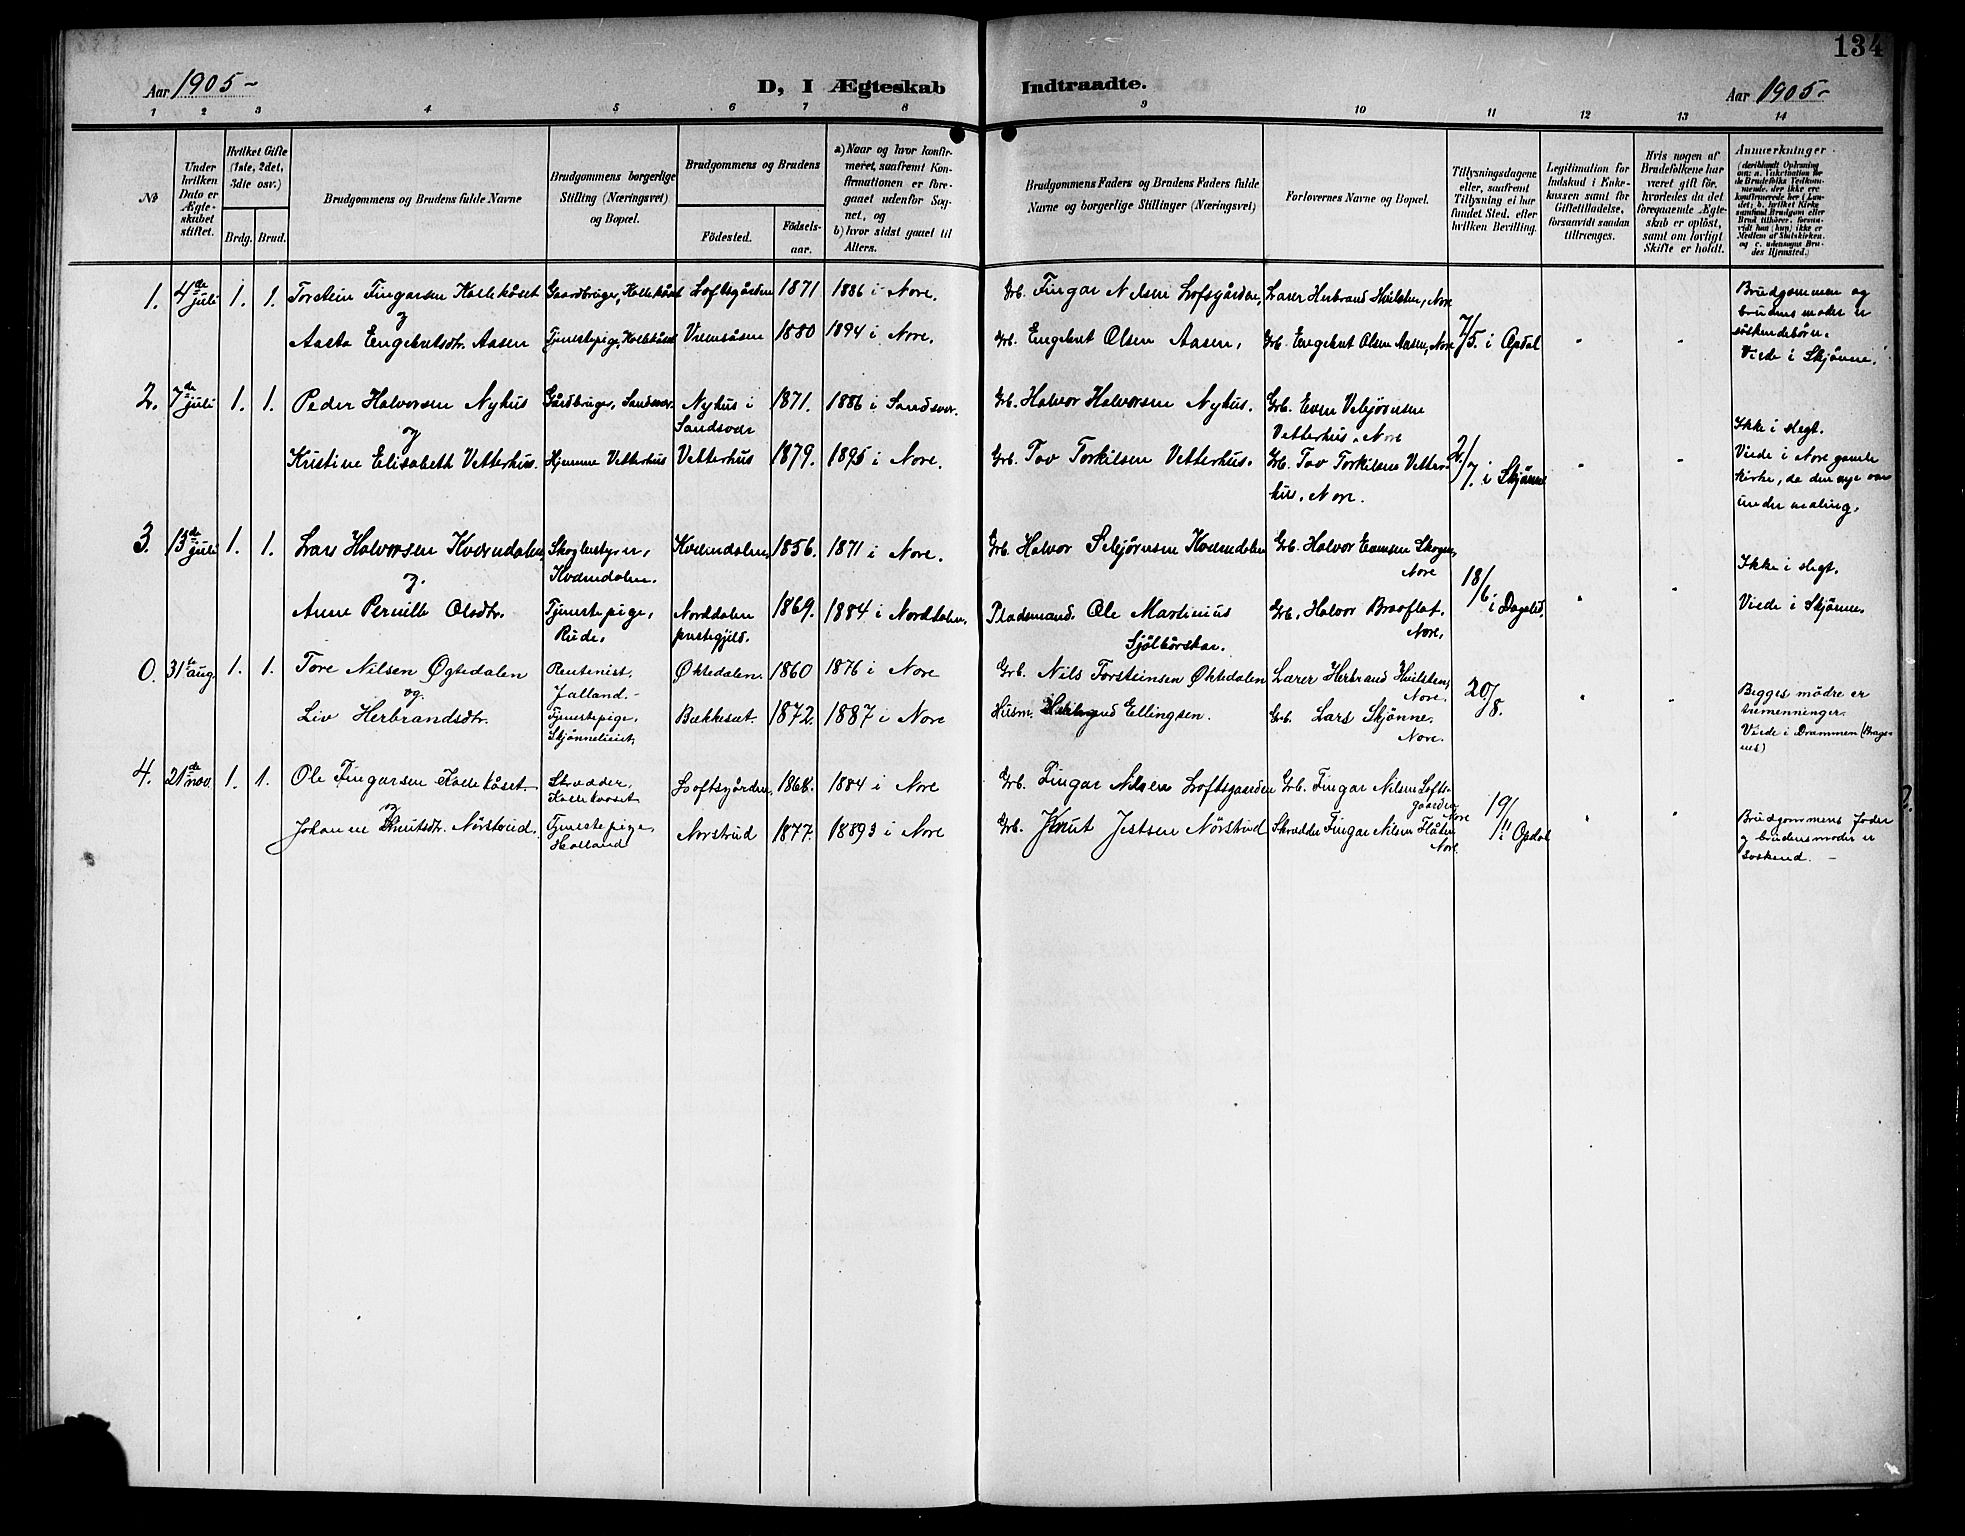 134
Aar 1905- D, I Ægteskab Indtraadte. Aar 1905-
1 2 3 4 5 6 7 8 9 10 11 12 13 14
№
Under hvilken Dato er Ægteskabet stiftet.
Hvilket Gifte (1ste, 2det, 3die osv.)
Brdg. Brud.
Brudgommens og Brudens fulde Navne
Brudgommens borgerlige Stilling (Næringsvei) og Bopæl.
Brudgommens og Brudens
Fødested. Fødselsaar.
a) Naar og hvor konfirmeret, saafremt Konfirmationen er foregaaet udenfor Sognet, og
b) hvor sidst gaaet til Alters.
Brudgommens Faders og Brudens Faders fulde Navne og borgerlige Stillinger (Næringsvei)
Forlovernes Navne og Bopæl.
Tillysningsdagene eller, saafremt Tillysning ei har fundet Sted, efter hvilken Bevilling.
Legitimation for Indskud i Enkekassen samt for Giftetilladelse, forsaavidt saadan tiltrænges.
Hvis nogen af Brudefolkene har været gift før, hvorledes da det foregaaende Ægteskab er opløst, samt om lovligt Skifte er holdt.
Anmærkninger
1. 4de juli 1. 1. Torstein Fingarsen Kollekåset Gaardbruger, Kollekåset Loftsgården 1871 1886 i Nore. Grb. Fingar Nilsen Lofsgården, Lærer Herbrand Hvilsten, Nore
og
Aasta Engebretsdtr. Aasen Tjenestepige, Kollekåset 1880 1894 i Nore. Grb. Engebret Olsen Aasen, Grb. Engebret Olsen Aasen, Nore 7/5. i Opdal " "
Brudgommen og
brudens moder er
søskendebørn.
Viede i Skjønne.
2. 7de juli 1. 1. Peder Halvorsen Nyhus Gårdbruger, Sandsvær Nyhus i Sandsvær 1871. 1886 i Sandsvær. Grb. Halvor Halvorsen Nyhus. Grb. Even Vebjørnsen
Vetterhus, Nore
og
Kristine Elisabeth Vetterhus. Hjemme Vetterhus Vetterhus 1879. 1895 i Nore. Grb. Tov Torkilsen Vetterhus. Grb. Tov Torkilsen Vetterhus, Nore. 2/7. i Skjønne " "
Ikke i slegt.
Viede i Nore gamle
kirke, da den nye var
under maling.
3. 13de juli 1. 1. Lars Halvorsen Kverndalen Skogbestyrer, Kverndalen. Kverndalen, 1856. 1871 i Nore. Grb. Halvor Kverndalen Grb. Halvor Evensen Skogen, Nore
og.
Anne Pernille Olsdtr. Tjenestepige, Rude. Norddalen prestegjeld. 1869. 1884 i Norddalen. Pladsmand. Ole Martinius Grb. Halvor Braaflat, Nore. 18/6 i Dagalid. " "
Ikke i slegt.
Viede i Skjønne.
0. 31te aug 1. 1. Tore Nilsen Øgtedalen Rentenist. Jalland. Øktedalen. 1860 1876 i Nore Grb. Nils Torsteinsen Øktedalen Lærer Herbrand Hvilsten, Nore.
og.
Liv Herbrandsdtr. Tjenestepige. Skjønnelieiet. Bækkesæt. 1872. 1887 i Nore Husm. Ellingsen. Grb. Lars Skjønne. Nore. 20/8. " "
Begges mødre er
tremenninger.
Viede i Drammen (Bragenes)
4. 21de nov. 1. 1. Ole Fingarsen Kollekåset Skræder, Kollekaaset Loftsgården, 1868. 1884 i Nore Grb. Fingar Nilsen Loftsgaarden Grb. Fingar Nilsen Loftsgaarden, Nore
og
Johanne Knutsdtr. Nørsterud. Tjenestepige, Holland Norstrud 1877. 1893 i Nore Grb. Knut Jestsen Nørstrud Skrædder Fingar Nilsen Flåten Nore. 19/11 i Opdal " "
Brudgommens fader
og brudens moder er
søskend. -